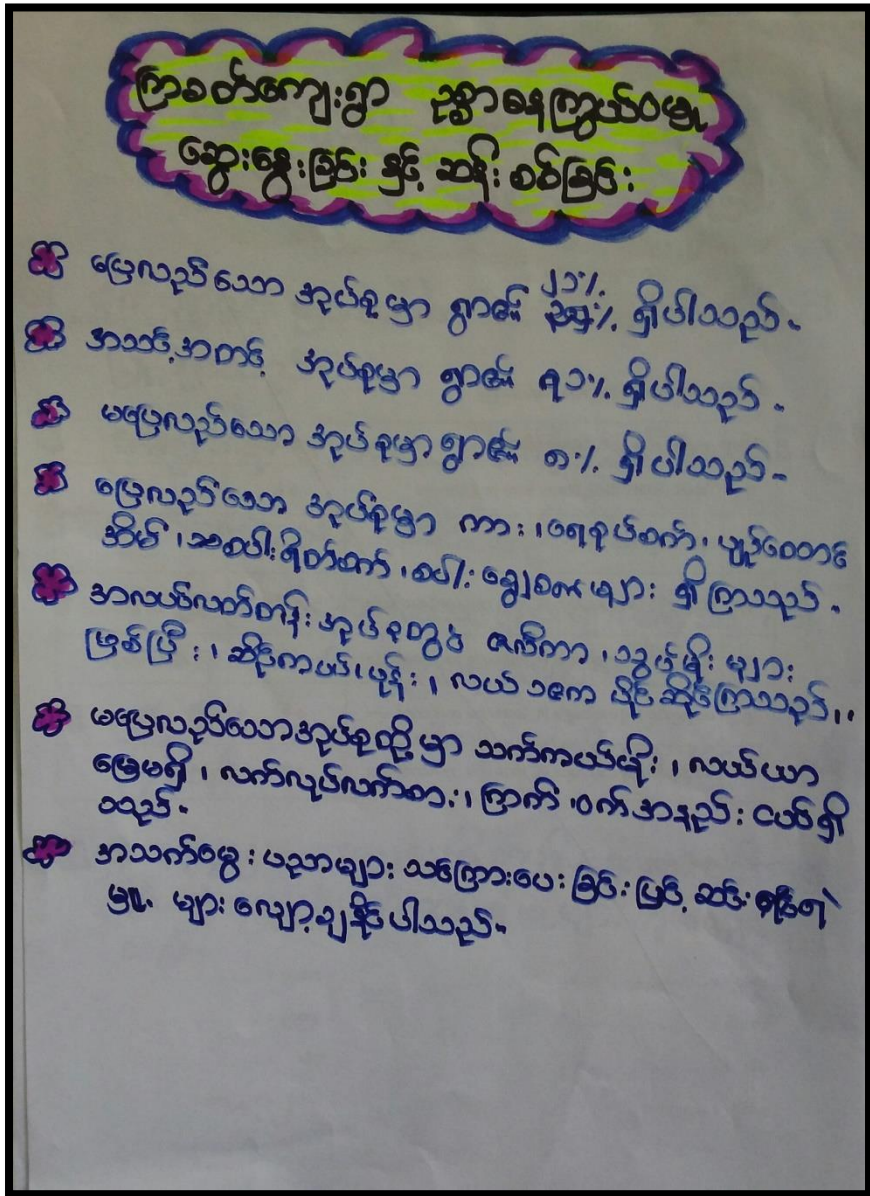 ကြာခတ်ကျေးရွာ ဥစ္စာဓနကြွယ်ဝမှု
ဆွေးနွေးခြင်း နှင့် ဆန်းစစ်ခြင်း
ပြေလည်သော အုပ်စုမှာ ရွာ၏ ၂၁% ရှိပါသည်။
အသင့်အတင့် အုပ်စုမှာ ရွာ၏ ၇၁% ရှိပါသည်။
မပြေလည်သော အုပ်စုမှာ ရွာ၏ ၈% ရှိပါသည်။
ပြေလည်သော အုပ်စုမှာ ကား၊ ရေစုပ်စက်၊ ပျဉ်ထောင်
အိမ်၊ စပါးရိတ်စက်၊ စပါးချွေစက်များ ရှိကြသည်။
အလယ်လတ်တန်း အုပ်စုတွင် ဇလီကာ၊ သွပ်မိုး များ
ဖြစ်ပြီး၊ ဆိုင်ကယ်၊ ဖုန်း၊ လယ် ၁ဧက ပိုင်ဆိုင်ကြသည်။
မပြေလည်သောအုပ်စုတို့မှာ သက်ကယ်မိုး၊ လယ်ယာ
မြေမရှိ၊ လက်လုပ်လက်စား၊ ကြက် ဝက် အနည်းငယ်ရှိ
သည်။
အသက်မွေး ပညာများ သင်ကြားပေးခြင်းဖြင့် ဆင်းရဲ
မှု များ လျော့ချနိုင်ပါသည်။